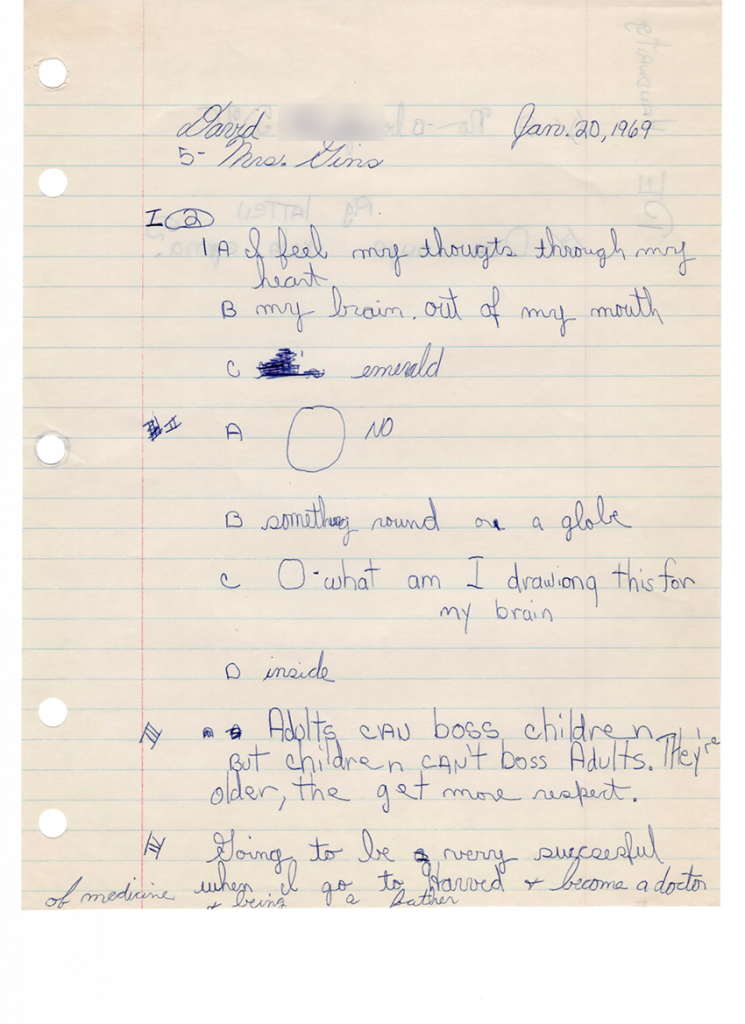 David Jan. 20, 1969
5- Mrs. Gins
I 2
1A I feel my thougts through my
heart
B my brain. out of my mouth
C emerald
II A NO
B something round on a globe
C O-what am I drawiong this for
my brain
D inside
III Adults CAN boss children
But children CAN't boss Adults. They're
older, the get more respect.
IV Going to be very succsesful
when I go to Harved + become a doctor
of medicine + being a father